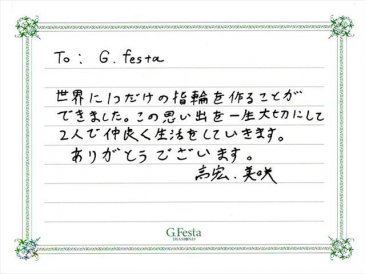 To: G. festa
世界に1つだけの指輪を作ることが
できました。この思い出を一生大切にして
2人で仲良く生活をしていきます。
ありがとうございます。
高宏. 美咲
G.Festa
DIAMOND